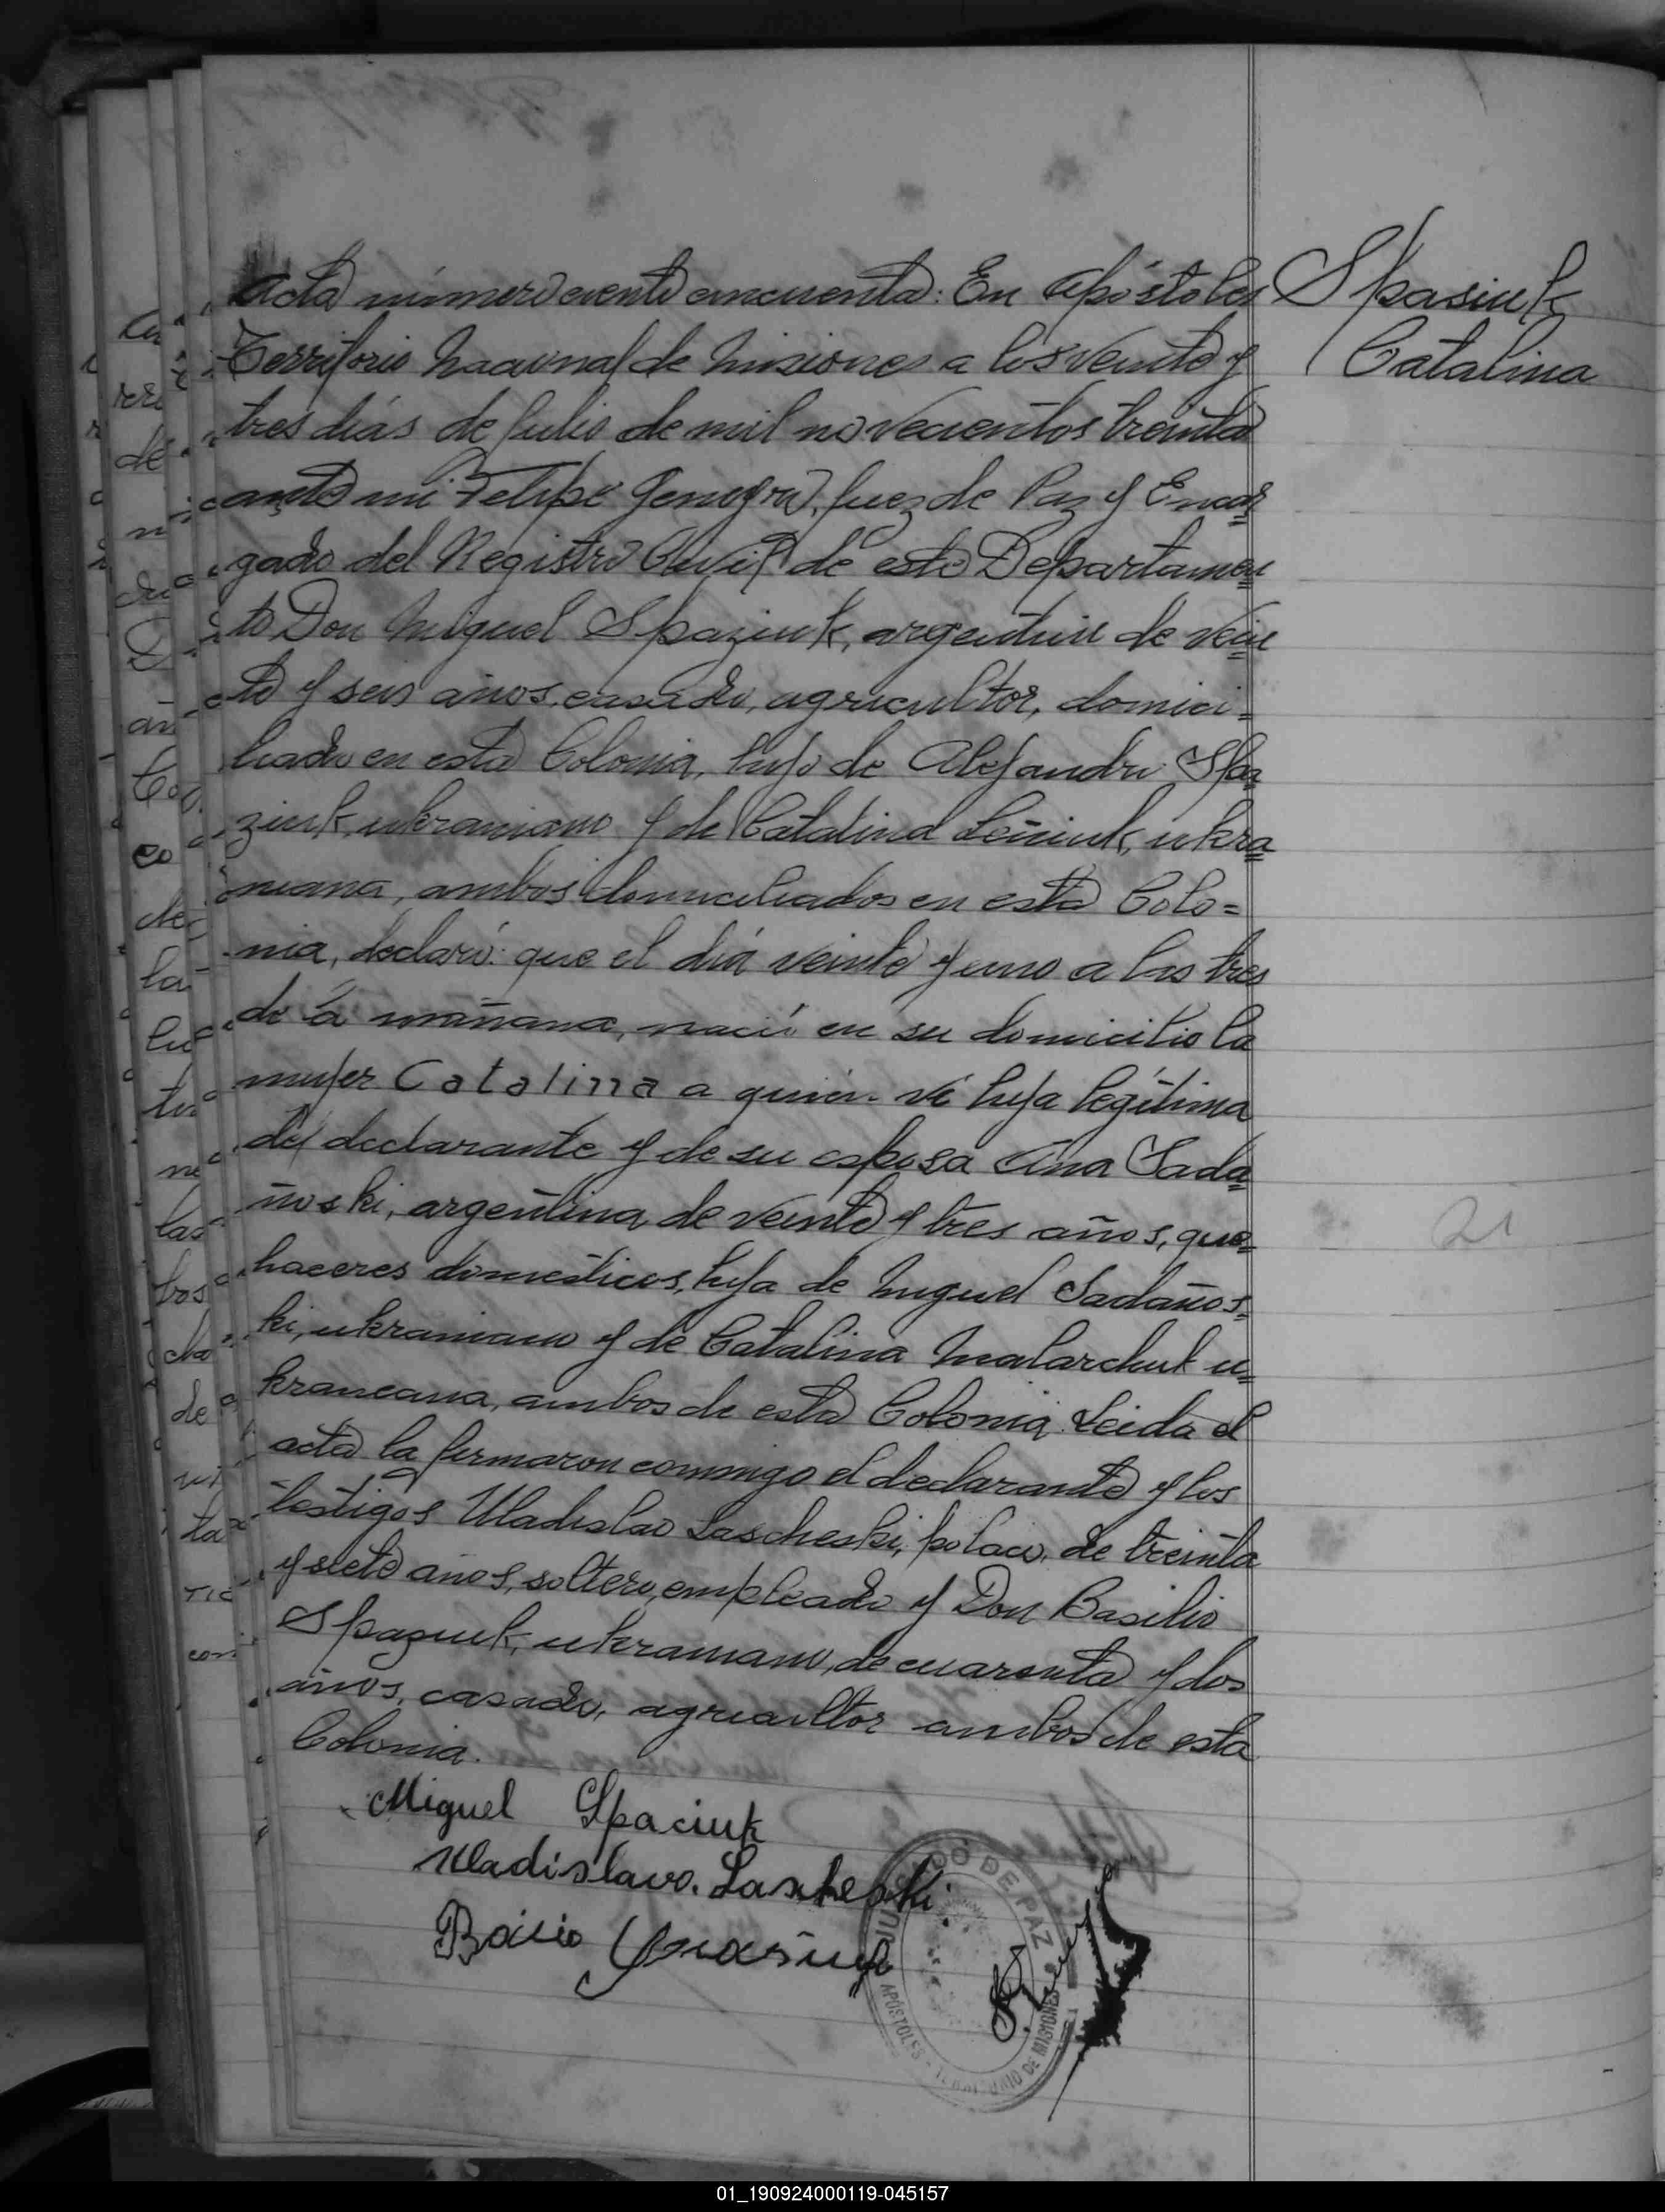 Acta número ciento cincuenta: En Apóstoles
Territorio Nacional de Misiones a los veinte y
tres diás de Julio de mil novecientos treinta
ante mi Felipe Juez de Paz y Encar
gado del Registro Civil de este Departamen
to Don Miguel Spaziuk, argentino de vein
te y seis años, casado, agricultor, domici=
liado en esta Colonia, hijo de Alejandro Spa
ziuk, ukraniano y de Catalina ukra
niana, ambos domiciliados en esta Colo=
nia, declaró: que el diá veinte y uno a las tres
de la mañana, nació en su domicilio la
mujer Catalina a quien ví hija legítima
del declarante y de su esposa Ana Sada
ñoski, argentina, de veinte y tres años, que=
haceres domésticos, hija de Miguel Sadaños=
ki, ukraniano y de Catalina Malarchuk u=
kraneana, ambos de esta Colonia. Leida el
acta la firmaron conmigo el declarante y los
testigos Uladislao Lascheski, polaco, de treinta
y siete años, soltero, empleado y Don Basilio
Spaziuk, ukraniano, de cuarenta y dos
años, casado, agricultor ambos de esta
Colonia.
Spasiuk
Catalina
21
Miguel Spaciuk
Uladislavo. Lascheski.
JUZGADO DE PAZ
APÓSTOLES - TERRITORIO DE MISIONES
01_190924000119-045157